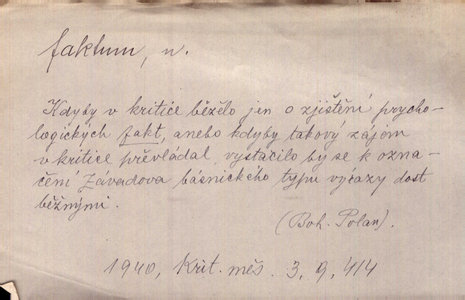 faktum, n.
Kdyby v kritice běželo jen o zjištění psycho-
logických fakt, anebo kdyby takový zájem
v kritice převládal, vystačilo by se k ozna-
čení Závadova básnického typu výrazy dost
běžnými.
(Boh. Polan).
1940, Krit. měs. 3, 9, 414